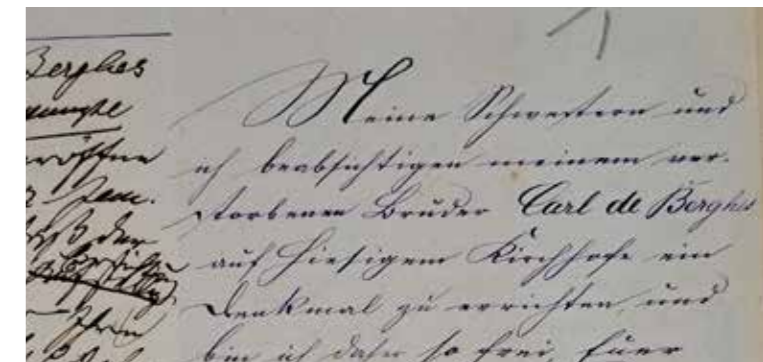 1
Berghes
eröffne
Meine Schwestern und
ich beabsichtigen meinem ver-
storbenen Bruder Carl de Berghes
auf hiesigem Kirchhofe ein
Denkmal zu errichten, und
bin ich daher so frei, Euer